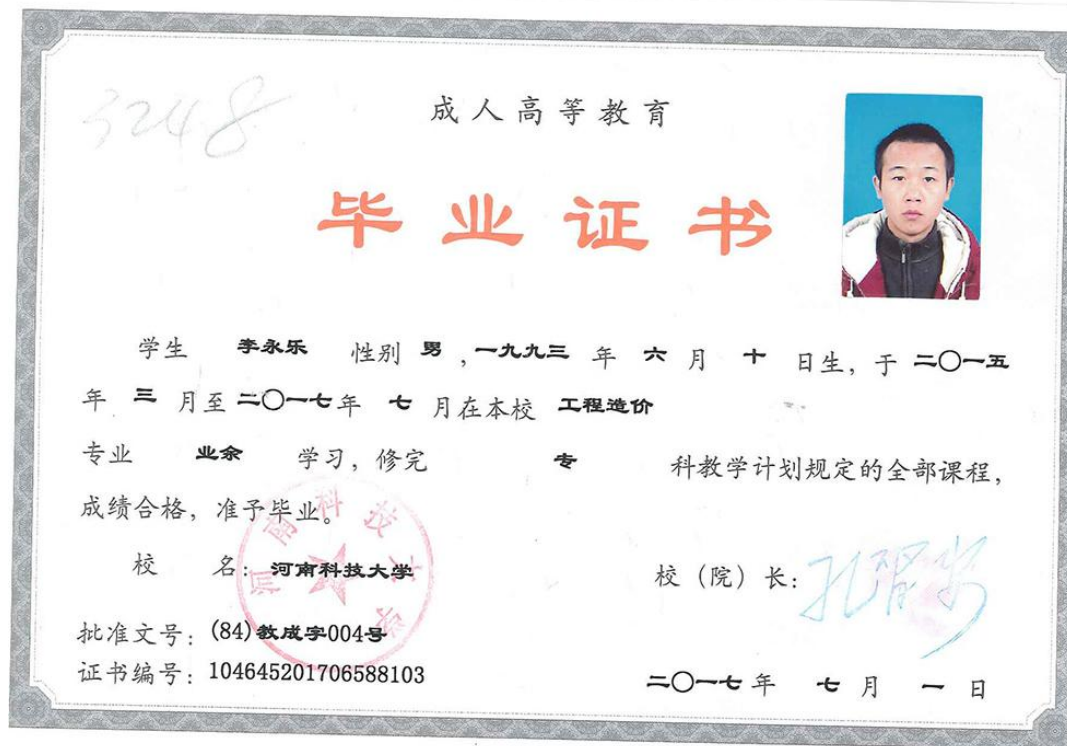 3248
成人高等教育
毕业证书
学生 李永乐 性别 男 ,一九九三 年 六 月 十 日生, 于 二〇一五
年 三 月至 二〇一七 年 七 月在本校 工程造价
专业 业余 学习, 修完 专 科教学计划规定的全部课程,
成绩合格, 准予毕业。
河南科技大学
校 名: 河南科技大学 校 (院) 长:
批准文号: (84)教成字004号
证书编号: 104645201706588103
二〇一七 年 七 月 一 日